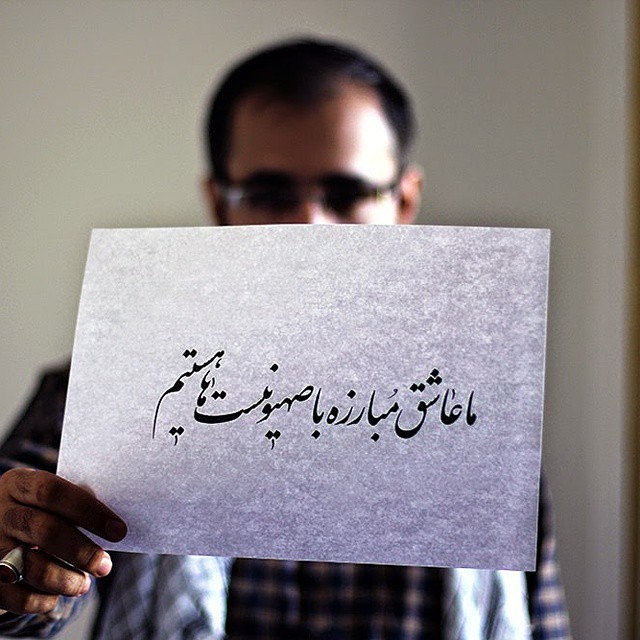 ما عاشق مُبارزه با صهیونیست‌ها هستیم